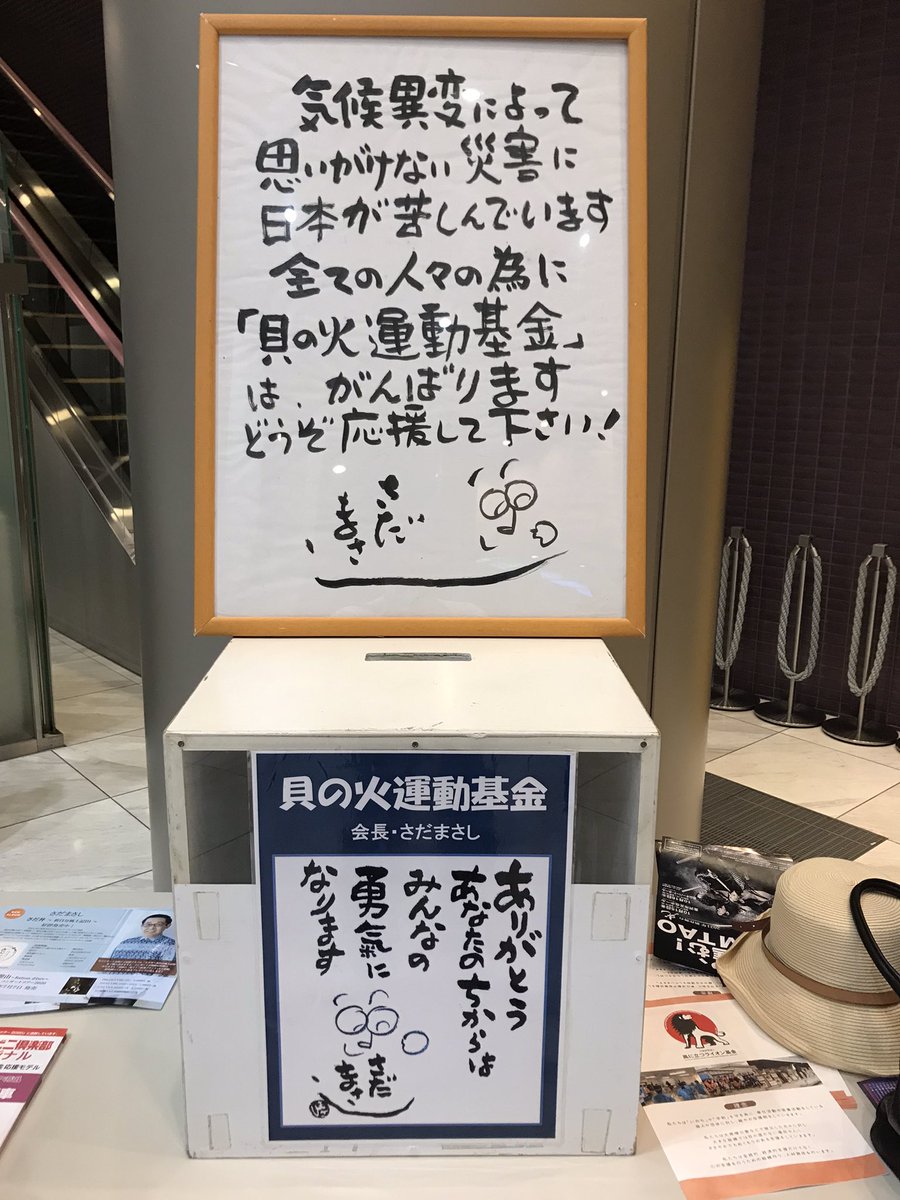 気候異変によって
思いがけない災害に
日本が苦しんでいます
全ての人々の為に
「貝の火運動基金」
は、がんばります
どうぞ応援して下さい!
さだ
まさし
貝の火運動基金
会長・さだまさし
ありがとう
あなたのちからは
みんなの
勇氣に
なります
さだ
まさし
さだまさし
風に立つライオン基金